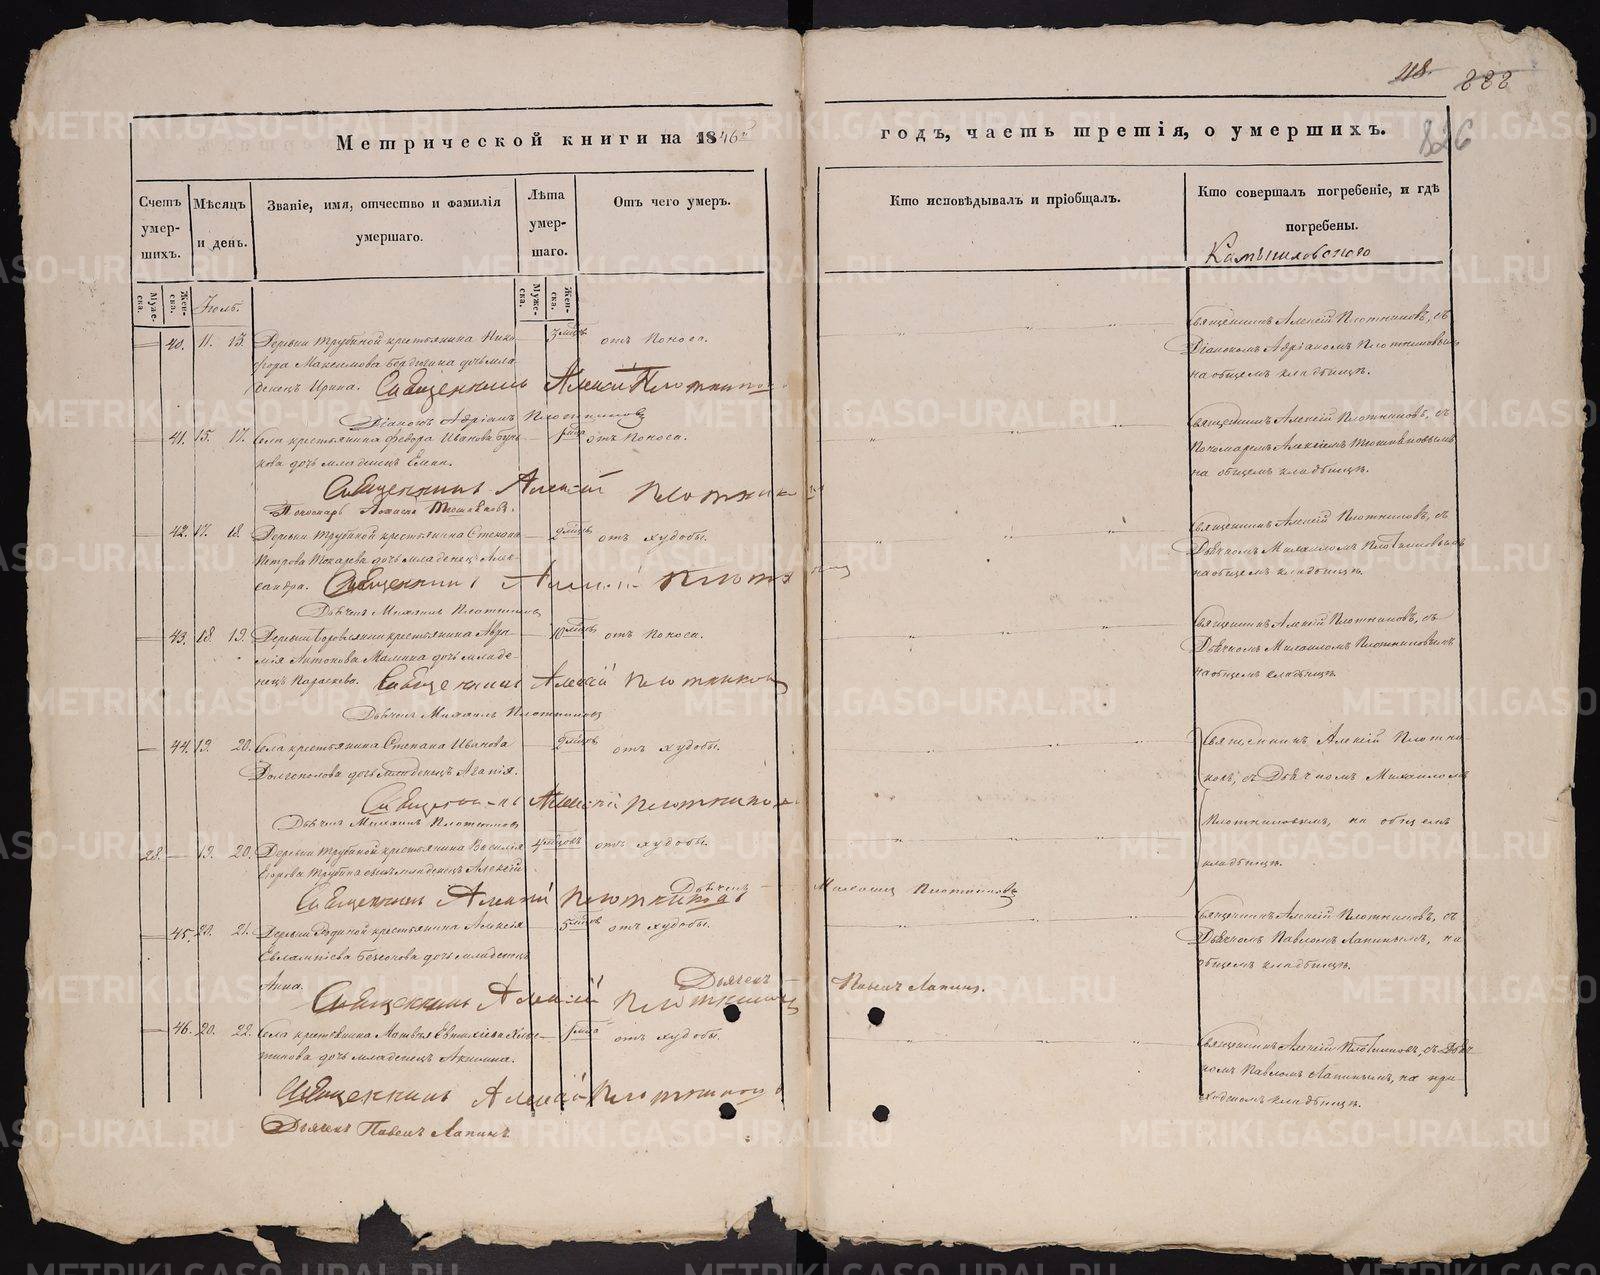 118.
888
826
Метрической книги на 1846й
годъ, часть третія, о умершихъ.
Счетъ умер-шихъ.
Мѣсяцъ и день.
Званіе, имя, отчество и фамилія умершаго.
Лѣта умер-шаго.
Отъ чего умеръ.
Кто исповѣдывалъ и пріобщалъ.
Кто совершалъ погребеніе, и гдѣ погребены.
Камышловскаго
Муже-ска.
Жен-ска.
Іюль.
Муже-ска.
Жен-ска.
40. 11. 13. Деревни Трубиной крестьянина Ники- 3 мѣсяц. отъ поноса.
фора Максимова дочь мла-
денецъ Ирина. Священникъ Алексій Плотниковъ
Діаконъ Адріанъ Плотниковъ
Священникъ Алексій Плотниковъ, съ
Діакономъ Адріаномъ Плотниковымъ
на общемъ кладбищѣ.
41. 15. 17. Села крестьянина Федора Иванова отъ поноса.
кова дочь младенецъ Елена.
Священникъ Алексій Плотников
Пономарь
Священникъ Алексій Плотниковъ, съ
Пономаремъ Алексіемъ
на общемъ кладбищѣ.
42. 17. 18. Деревни Трубиной крестьянина Степана 9 мѣсяц. отъ худобы.
Петрова Токарева дочь младенецъ Алек-
сандра. Священникъ Алексій Плотниковъ
Дьячекъ Михаилъ Плотниковъ
Священникъ Алексій Плотниковъ, съ
Дьячкомъ Михаиломъ Плотниковымъ
на общемъ кладбищѣ.
43. 18. 19. Деревни крестьянина Авра- 10 мѣсяц. отъ поноса.
мія Антонова Малкина дочь младе-
нецъ Параскева. Священникъ Алексій Плотниковъ
Дьячекъ Михаилъ Плотниковъ
Священникъ Алексій Плотниковъ, съ
Дьячкомъ Михаиломъ Плотниковымъ
на общемъ кладбищѣ.
44. 19. 20. Села крестьянина Степана Иванова 9 мѣсяц. отъ худобы.
Долгополова дочь младенецъ Агапія.
Священникъ Алексій Плотниковъ
Дьячекъ Михаилъ Плотниковъ
Священникъ Алексій Плотни-
ковъ, съ Дьячкомъ Михаиломъ
Плотниковымъ, на общемъ
кладбищѣ.
28. 19. 20. Деревни Трубиной крестьянина Василія 4 мѣсяцовъ отъ худобы.
Егорова Трубина сынъ младенецъ Алексій.
Священникъ Алексій Плотниковъ Дьячекъ Михаилъ Плотниковъ
45. 20. 21. Деревни крестьянина Алексія 5 мѣсяц. отъ худобы.
Евлампіева дочь младенецъ
Анна. Священникъ Алексій Плотниковъ Дьячекъ Павелъ Лапинъ.
Священникъ Алексій Плотниковъ, съ
Дьячкомъ Павломъ Лапинымъ, на
общемъ кладбищѣ.
46. 20. 22. Села крестьянина Матвѣя отъ худобы.
тикова дочь младенецъ Акилина.
Священникъ Алексій Плотниковъ
Дьячекъ Павелъ Лапинъ
Священникъ Алексій Плотниковъ, съ Дьяч-
комъ Павломъ Лапинымъ, на при-
ходскомъ кладбищѣ.
METRIKI.GASO-URAL.RU